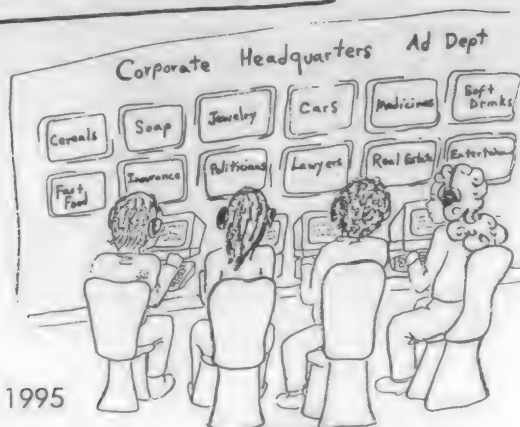 Corporate Headquarters Ad Dept
Cereals Soap Jewelry Cars Medicines Soft Drinks
Fast Food Insurance Politicians Lawyers Real Estate Entertainment
1995